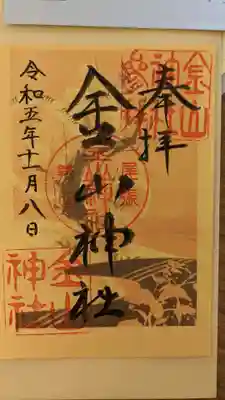 奉拝
金山神社
令和五年十一月八日
金山
神社
尾張
金山
神社